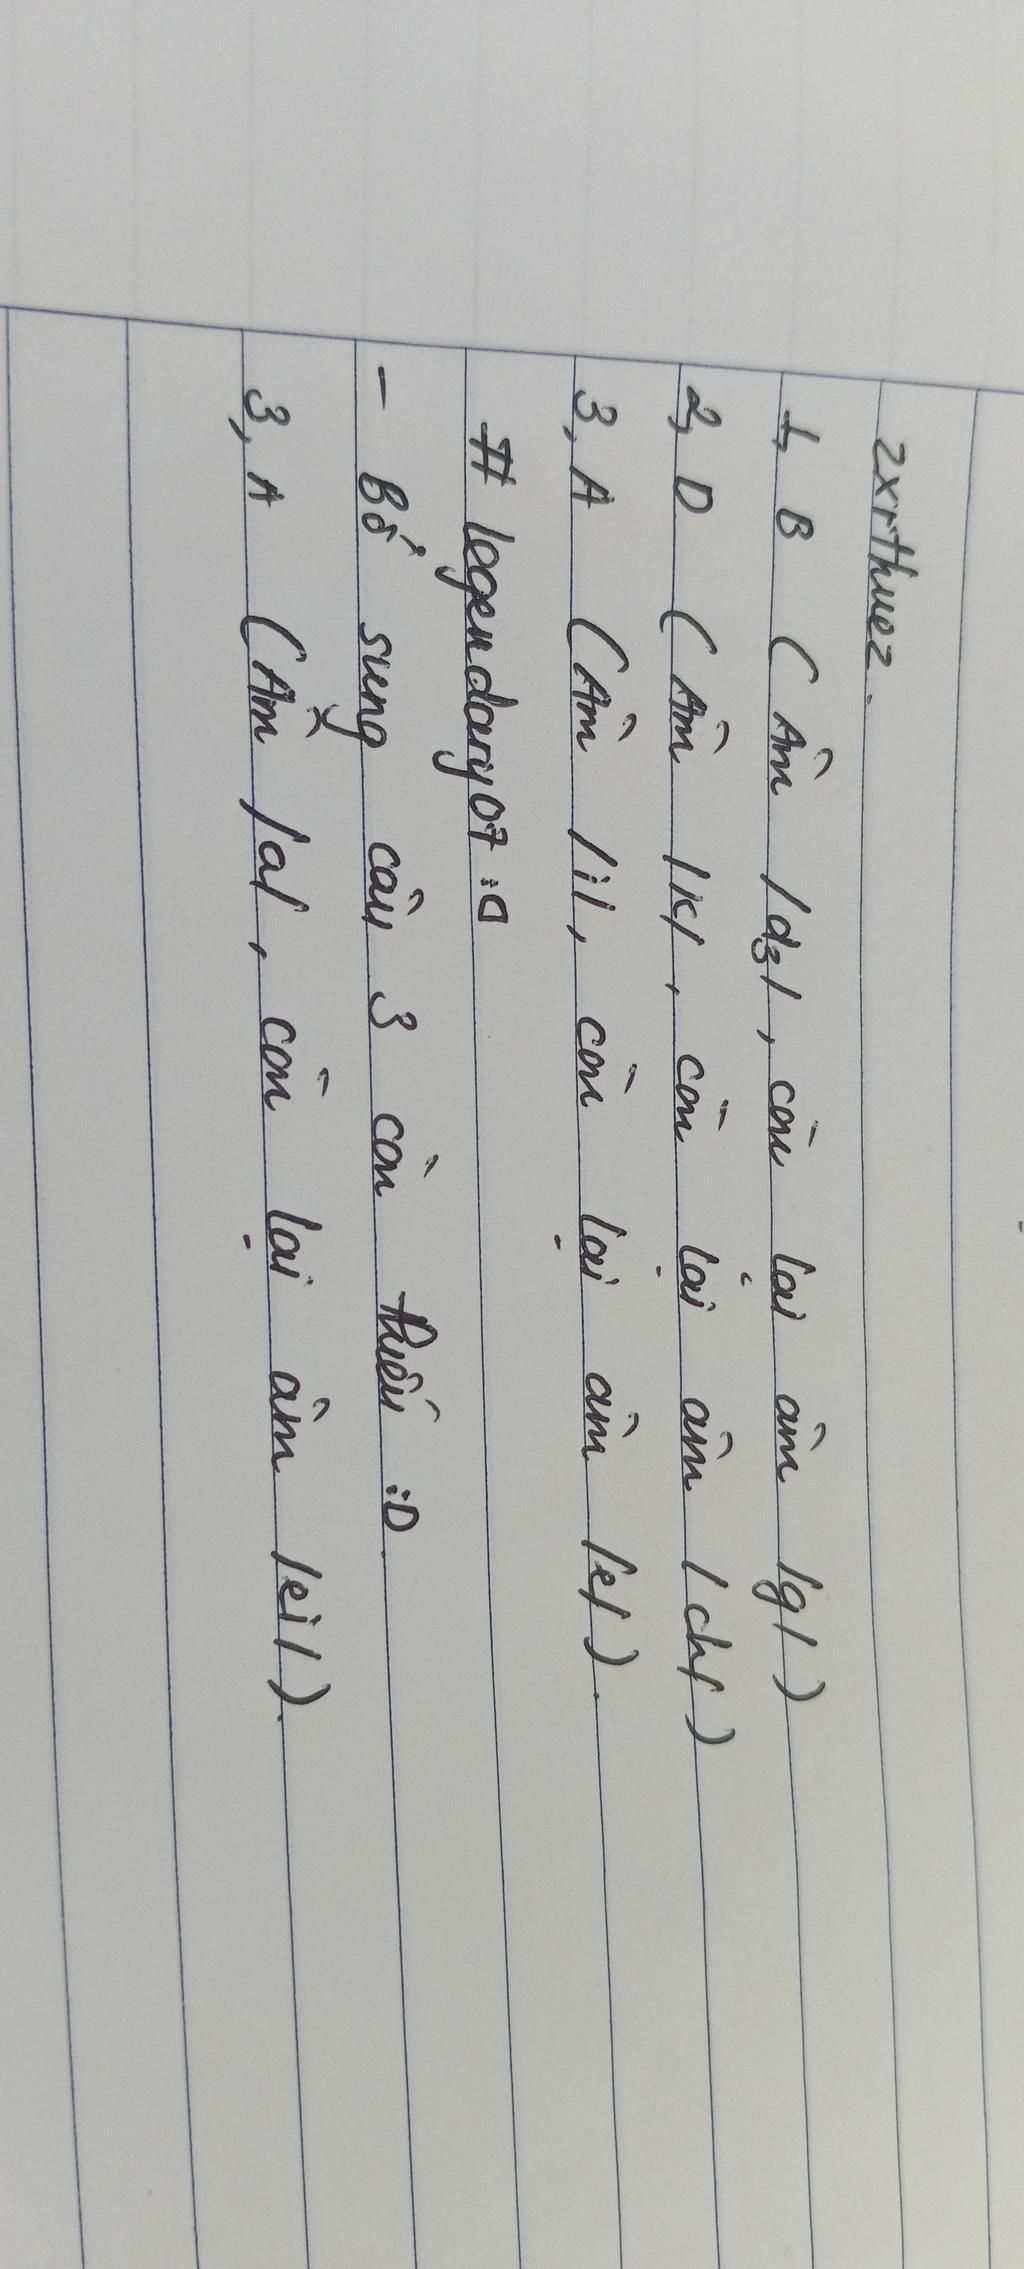 zxrthuez.
1, B ( Âm /dʒ/, còn lại âm /g/)
2, D ( Âm /k/, còn lại âm /ch/)
3, A (Âm /i/, còn lại âm /e/).
# legendary07 :D
- Bổ sung câu 3 còn thiếu :D
3, A (Âm /a/, còn lại âm /ei/).